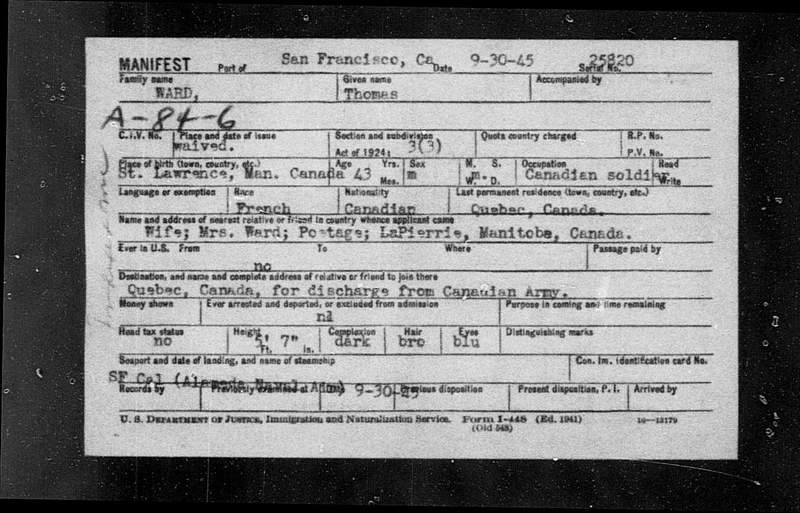 MANIFEST Port of San Francisco, Ca Date 9-30-45 25820 Serial No.
Family name Given name Accompanied by
WARD, Thomas
A-84-6
C.I.V. No. Place and date of issue Section and subdivision Quota country charged R.P. No.
waived. Act of 1924: 3(3) P.V. No.
Place of birth (town, country, etc.) Age Yrs. Sex M. S. Occupation Read
St. Lawrence, Man. Canada 43 Mos. m W. m. D. Canadian soldier Write
Language or exemption Race Nationality Last permanent residence (town, country, etc.)
French Canadian Quebec, Canada.
Name and address of nearest relative or friend in country whence applicant came
Wife; Mrs. Ward; Postage; LaPierrie, Manitoba, Canada.
Ever in U.S. From To Where Passage paid by
no
Destination, and name and complete address of relative or friend to join there
Quebec, Canada, for discharge from Canadian Army.
Money shown Ever arrested and deported, or excluded from admission Purpose in coming and time remaining
Head tax status Height Complexion Hair Eyes Distinguishing marks
no 5' Ft. 7" In. dark bro blu
Seaport and date of landing, and name of steamship Con. Im. identification card No.
SF Cal (Alameda Naval 9-30-45
Records by Previously examined at Previous disposition Present disposition, P. I. Arrived by
U. S. DEPARTMENT OF JUSTICE, Immigration and Naturalization Service. Form I-448 (Ed. 1941) 16—13179
(Old 548)